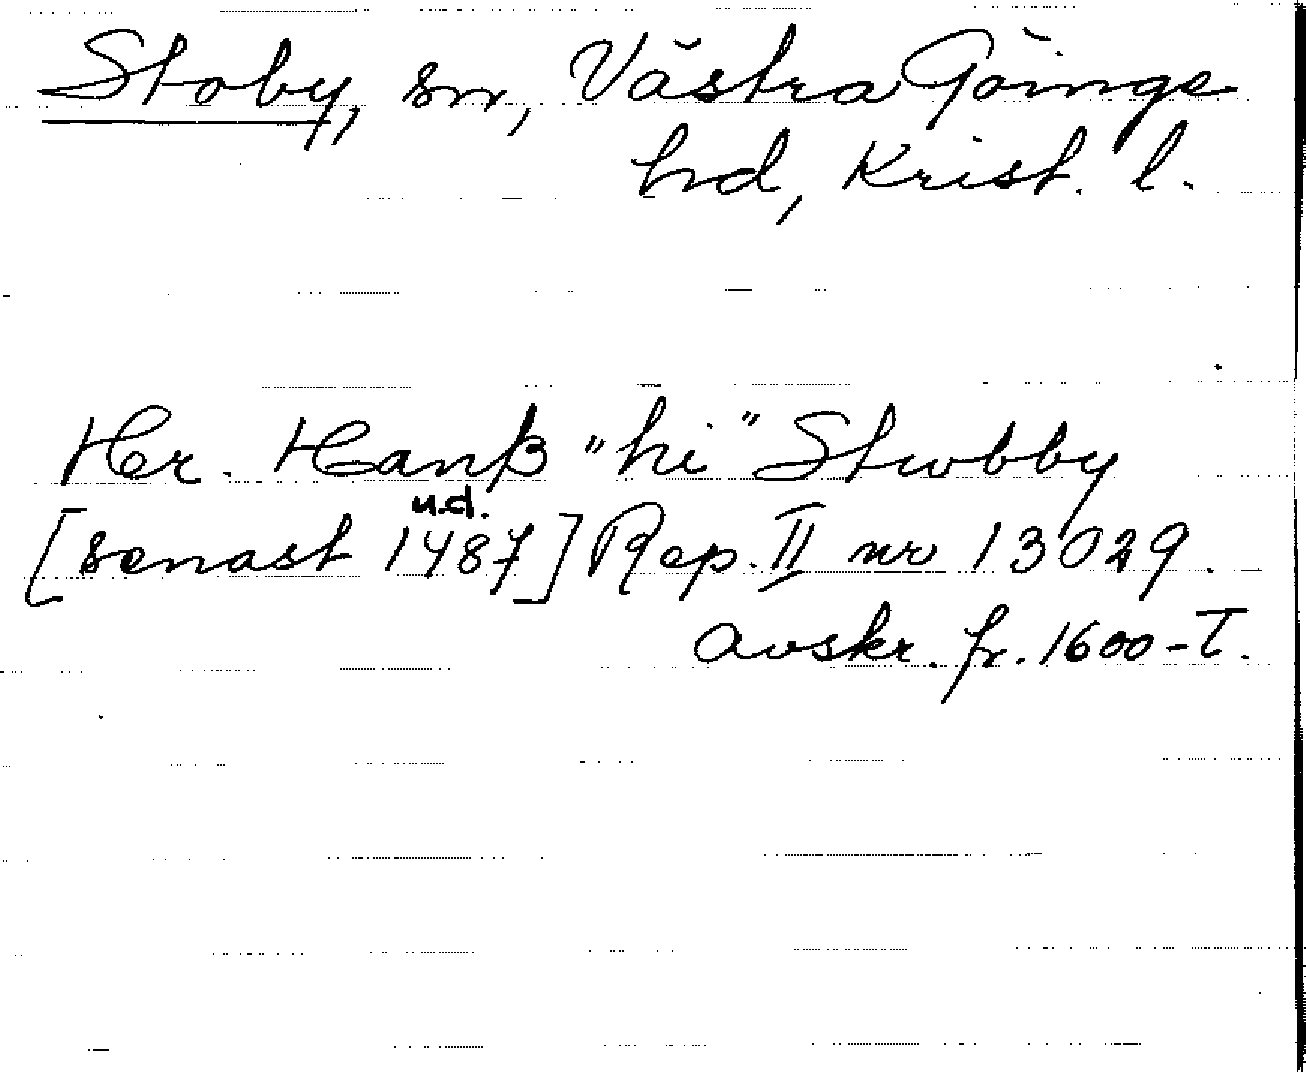 Stoby, sn, Västra Göinge
hd, Krist. l.
Her. Hanß "hi" Stwbby
u.d.
[senast 1487] Rep. II nr 13029.
avskr. fr. 1600-T.